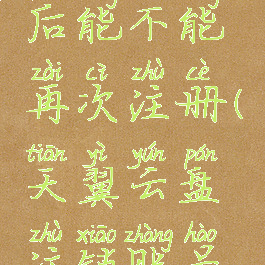 后能不能
zài cì zhù cè
再次注册(
tiān yì yún pán
天翼云盘
zhù xiāo zhàng hào
注销账号